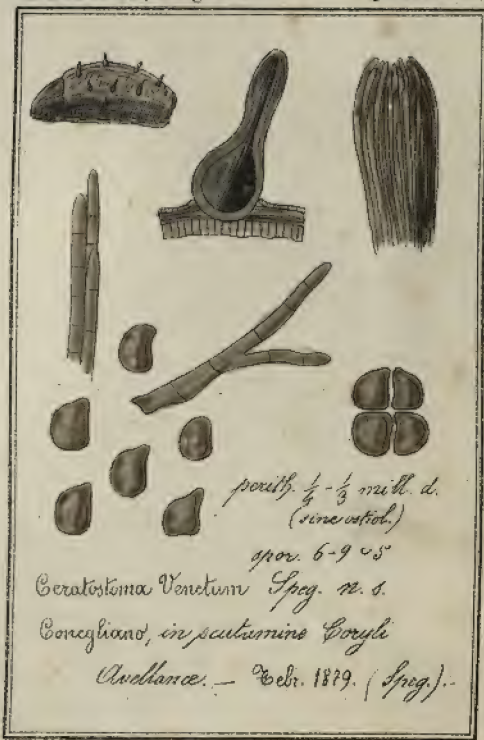 perith. 1/4 - 1/3 mill. d.
(sine ostiol.)
spor. 6-9 ∽ 5
Ceratostoma Venetum Speg. n. s.
Conegliano, in putamine Coryli
Avellanæ. — Febr. 1879. (Speg.). -